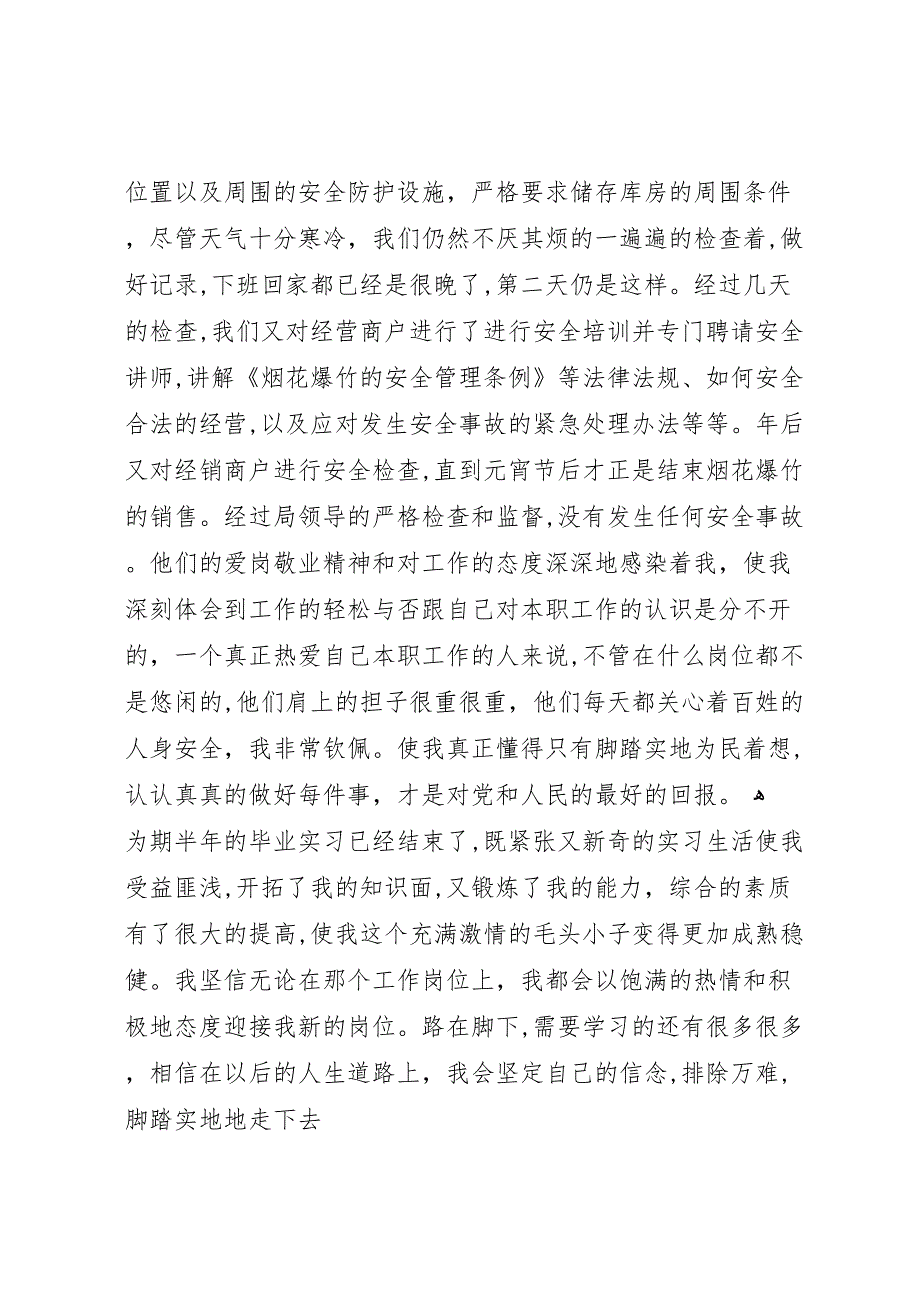 位置以及周围的安全防护设施，严格要求储存库房的周围条件
，尽管天气十分寒冷，我们仍然不厌其烦的一遍遍的检查着,做
好记录,下班回家都已经是很晚了,第二天仍是这样。经过几天
的检查,我们又对经营商户进行了进行安全培训并专门聘请安全
讲师,讲解《烟花爆竹的安全管理条例》等法律法规、如何安全
合法的经营,以及应对发生安全事故的紧急处理办法等等。年后
又对经销商户进行安全检查,直到元宵节后才正是结束烟花爆竹
的销售。经过局领导的严格检查和监督,没有发生任何安全事故
。他们的爱岗敬业精神和对工作的态度深深地感染着我，使我
深刻体会到工作的轻松与否跟自己对本职工作的认识是分不开
的，一个真正热爱自己本职工作的人来说,不管在什么岗位都不
是悠闲的,他们肩上的担子很重很重，他们每天都关心着百姓的
人身安全，我非常钦佩。使我真正懂得只有脚踏实地为民着想,
认认真真的做好每件事，才是对党和人民的最好的回报。 ﻫ
为期半年的毕业实习已经结束了,既紧张又新奇的实习生活使我
受益匪浅,开拓了我的知识面,又锻炼了我的能力，综合的素质
有了很大的提高,使我这个充满激情的毛头小子变得更加成熟稳
健。我坚信无论在那个工作岗位上，我都会以饱满的热情和积
极地态度迎接我新的岗位。路在脚下,需要学习的还有很多很多
，相信在以后的人生道路上，我会坚定自己的信念,排除万难,
脚踏实地地走下去